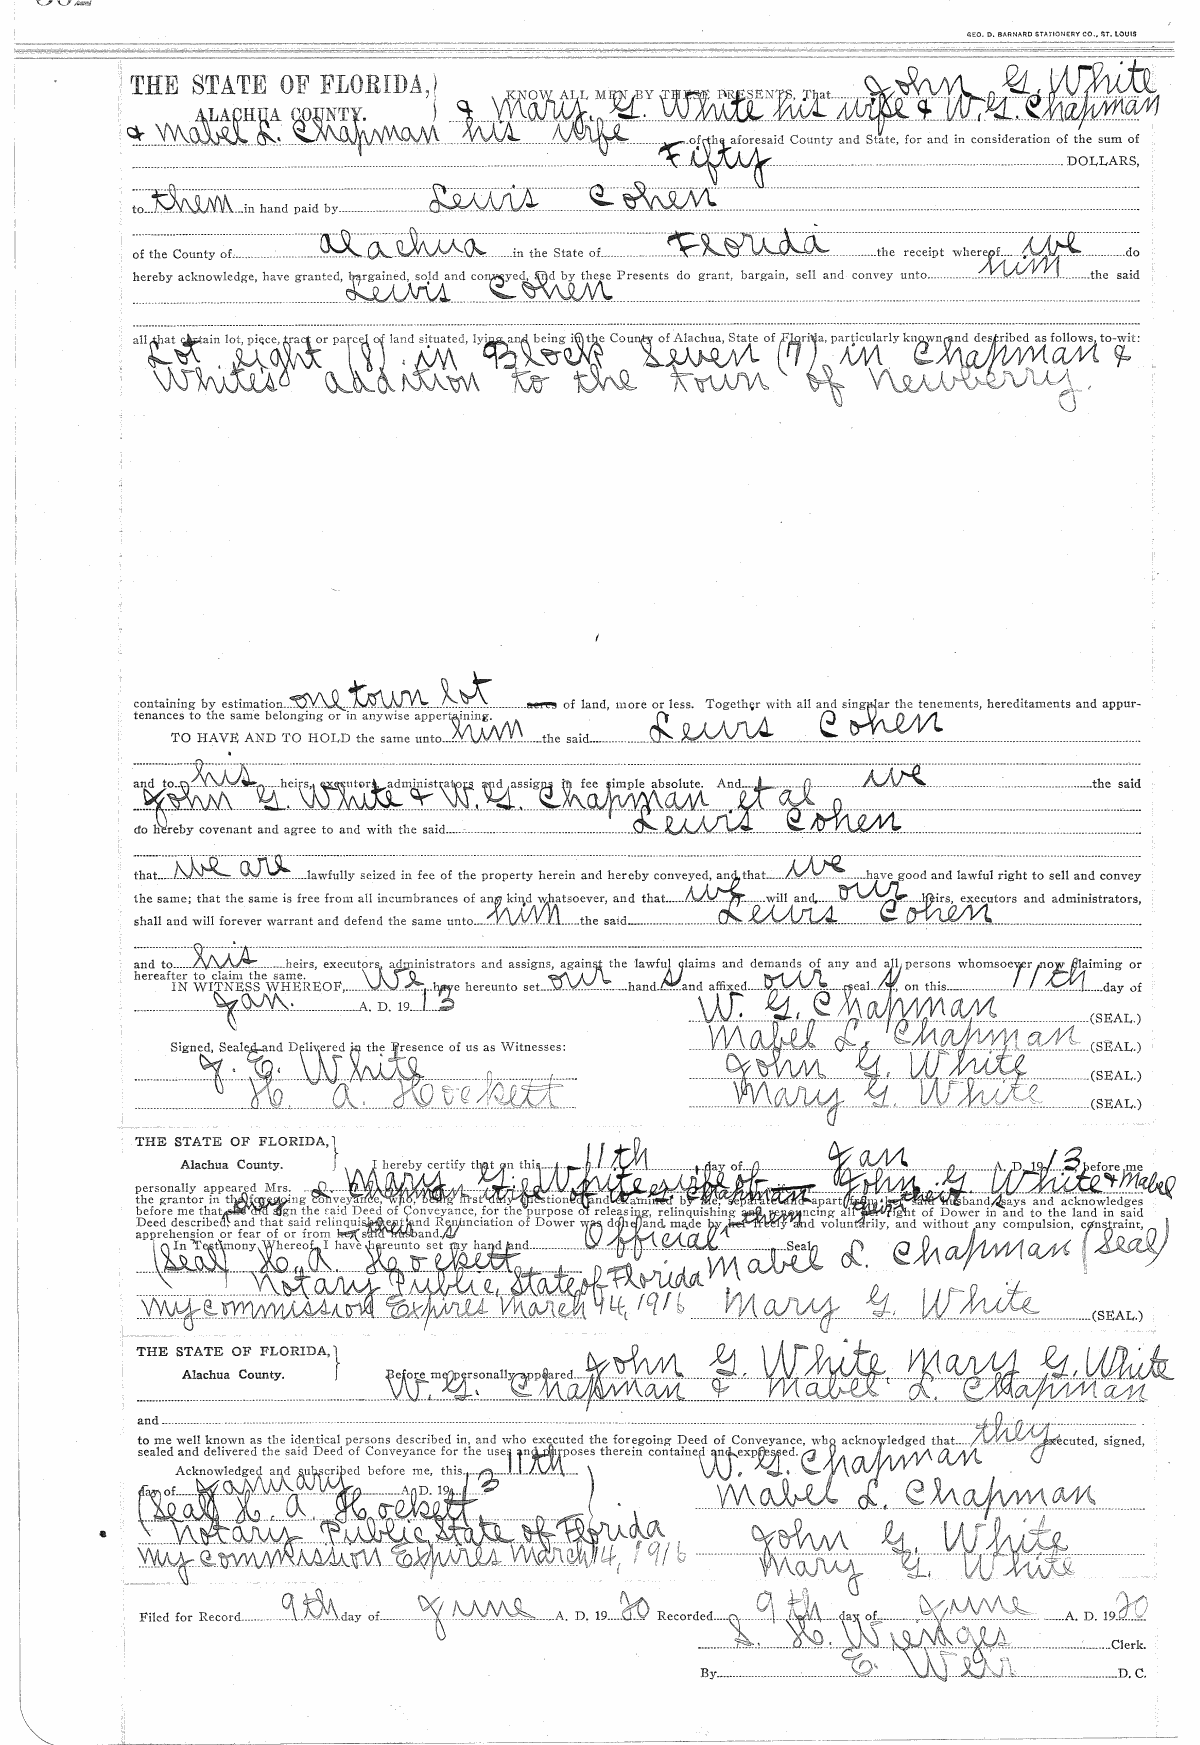 GEO. D. BARNARD STATIONERY CO., ST. LOUIS
THE STATE OF FLORIDA,
ALACHUA COUNTY.
KNOW ALL MEN BY THESE PRESENTS, That John G. White
& Mary G. White his wife & W. G. Chapman
& Mabel L. Chapman his wife of the aforesaid County and State, for and in consideration of the sum of
Fifty DOLLARS,
to them in hand paid by Lewis Cohen
of the County of Alachua in the State of Florida the receipt whereof we do
hereby acknowledge, have granted, bargained, sold and conveyed, and by these Presents do grant, bargain, sell and convey unto him the said
Lewis Cohen
all that certain lot, piece, tract or parcel of land situated, lying and being in the County of Alachua, State of Florida, particularly known and described as follows, to-wit:
Lot eight (8) in Block Seven (7) in Chapman &
Whites addition to the town of Newberry.
containing by estimation one town lot acres of land, more or less. Together with all and singular the tenements, hereditaments and appur-
tenances to the same belonging or in anywise appertaining.
TO HAVE AND TO HOLD the same unto him the said Lewis Cohen
and to his heirs, executors, administrators and assigns in fee simple absolute. And we the said
John G. White & W. G. Chapman et al
do hereby covenant and agree to and with the said Lewis Cohen
that we are lawfully seized in fee of the property herein and hereby conveyed, and that we have good and lawful right to sell and convey
the same; that the same is free from all incumbrances of any kind whatsoever, and that we will and our heirs, executors and administrators,
shall and will forever warrant and defend the same unto him the said Lewis Cohen
and to his heirs, executors, administrators and assigns, against the lawful claims and demands of any and all persons whomsoever now claiming or
hereafter to claim the same.
IN WITNESS WHEREOF, We have hereunto set our hand s and affixed our seal s, on this 11th day of
Jan. A. D. 1913
W. G. Chapman (SEAL.)
Mabel L. Chapman (SEAL.)
Signed, Sealed and Delivered in the Presence of us as Witnesses:
J. E. White John G. White (SEAL.)
H. A. Hockett Mary G. White (SEAL.)
THE STATE OF FLORIDA,
Alachua County. I hereby certify that on this 11th day of Jan A. D. 1913 before me
personally appeared Mrs. Mary G. White wife of John G. White & Mabel
L. Chapman wife of W. G. Chapman
the grantor in the foregoing conveyance, who, being first duly questioned and examined by me, separate and apart from her said husband, says and acknowledges
before me that they did sign the said Deed of Conveyance, for the purpose of releasing, relinquishing and renouncing all their right of Dower in and to the land in said
Deed described, and that said relinquishment and Renunciation of Dower was done and made by them freely and voluntarily, and without any compulsion, constraint,
apprehension or fear of or from their said husbands
In Testimony Whereof, I have hereunto set my hand and Official Seal
(Seal) H. A. Hockett Mabel L. Chapman (Seal)
Notary Public, State of Florida
My commission Expires March 14, 1916 Mary G. White (SEAL.)
THE STATE OF FLORIDA,
Alachua County. Before me personally appeared John G. White, Mary G. White
W. G. Chapman & Mabel L. Chapman
and
to me well known as the identical persons described in, and who executed the foregoing Deed of Conveyance, who acknowledged that they executed, signed,
sealed and delivered the said Deed of Conveyance for the uses and purposes therein contained and expressed.
Acknowledged and subscribed before me, this 11th W. G. Chapman
day of January A. D. 1913
(Seal) H. A. Hockett Mabel L. Chapman
Notary Public State of Florida John G. White
My commission Expires March 14, 1916 Mary G. White
Filed for Record 9th day of June A. D. 1920 Recorded 9th day of June A. D. 1920
S. H. Wienges Clerk.
By E. Weir D. C.